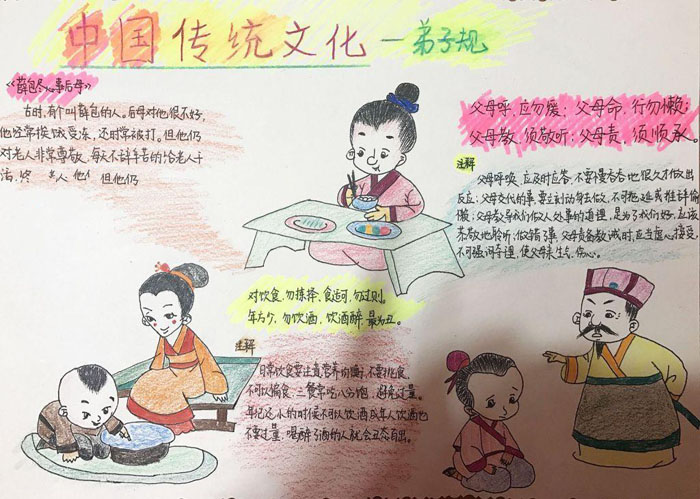 中国传统文化—弟子规
《薛包尽心事后母》
古时，有个叫薛包的人。后母对他很不好，
他经常挨饿受冻，还时常被打。但他仍
对老人非常尊敬，每天不辞辛苦的给老人干
活，
人 他 但他仍
父母呼，应勿缓；父母命，行勿懒；
父母教，须敬听；父母责，须顺承。
注解
父母呼唤，应及时应答，不要慢吞吞地很久才做出
反应；父母交代的事，要立刻动身去做，不可拖延或推辞偷
懒；父母教导我们做人处事的道理，是为了我们好，应该
恭敬地聆听；做错了事，父母责备教诫时，应当虚心接受，
不可强词夺理，使父母亲生气、伤心。
对饮食，勿拣择，食适可，勿过则。
年方少，勿饮酒，饮酒醉，最为丑。
注解
日常饮食要注意营养均衡，不要挑食，
不可以偏食，三餐常吃八分饱，避免过量。
年纪还小的时候不可以饮酒，成年人饮酒也
不要过量，喝醉了酒的人就会丑态百出。